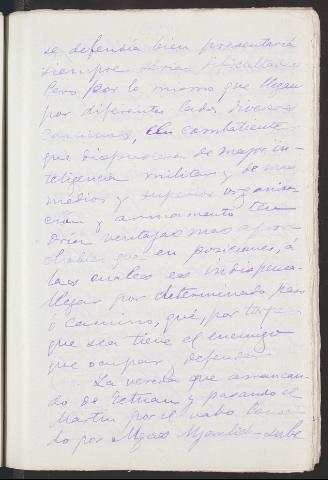 se defendia bien presentaria
siempre serias dificultades
Pero por lo mismo que llegan
por diferentes lados diversos
caminos, un combatiente
que dispusiera de mayor in-
teligencia militar y de mas
medios y superior organiza-
cion y armamento ten
dria ventajas mas apre
ciables que en posiciones, á
las cuales es indispensa-
llegar por determinado paso
ó camino, que, por torpe
que sea tiene el enemigo
que ocupar y defender
La vereda que arrancan-
do de Tetuan y pasando el
Martin por el vado conoci-
do por sube